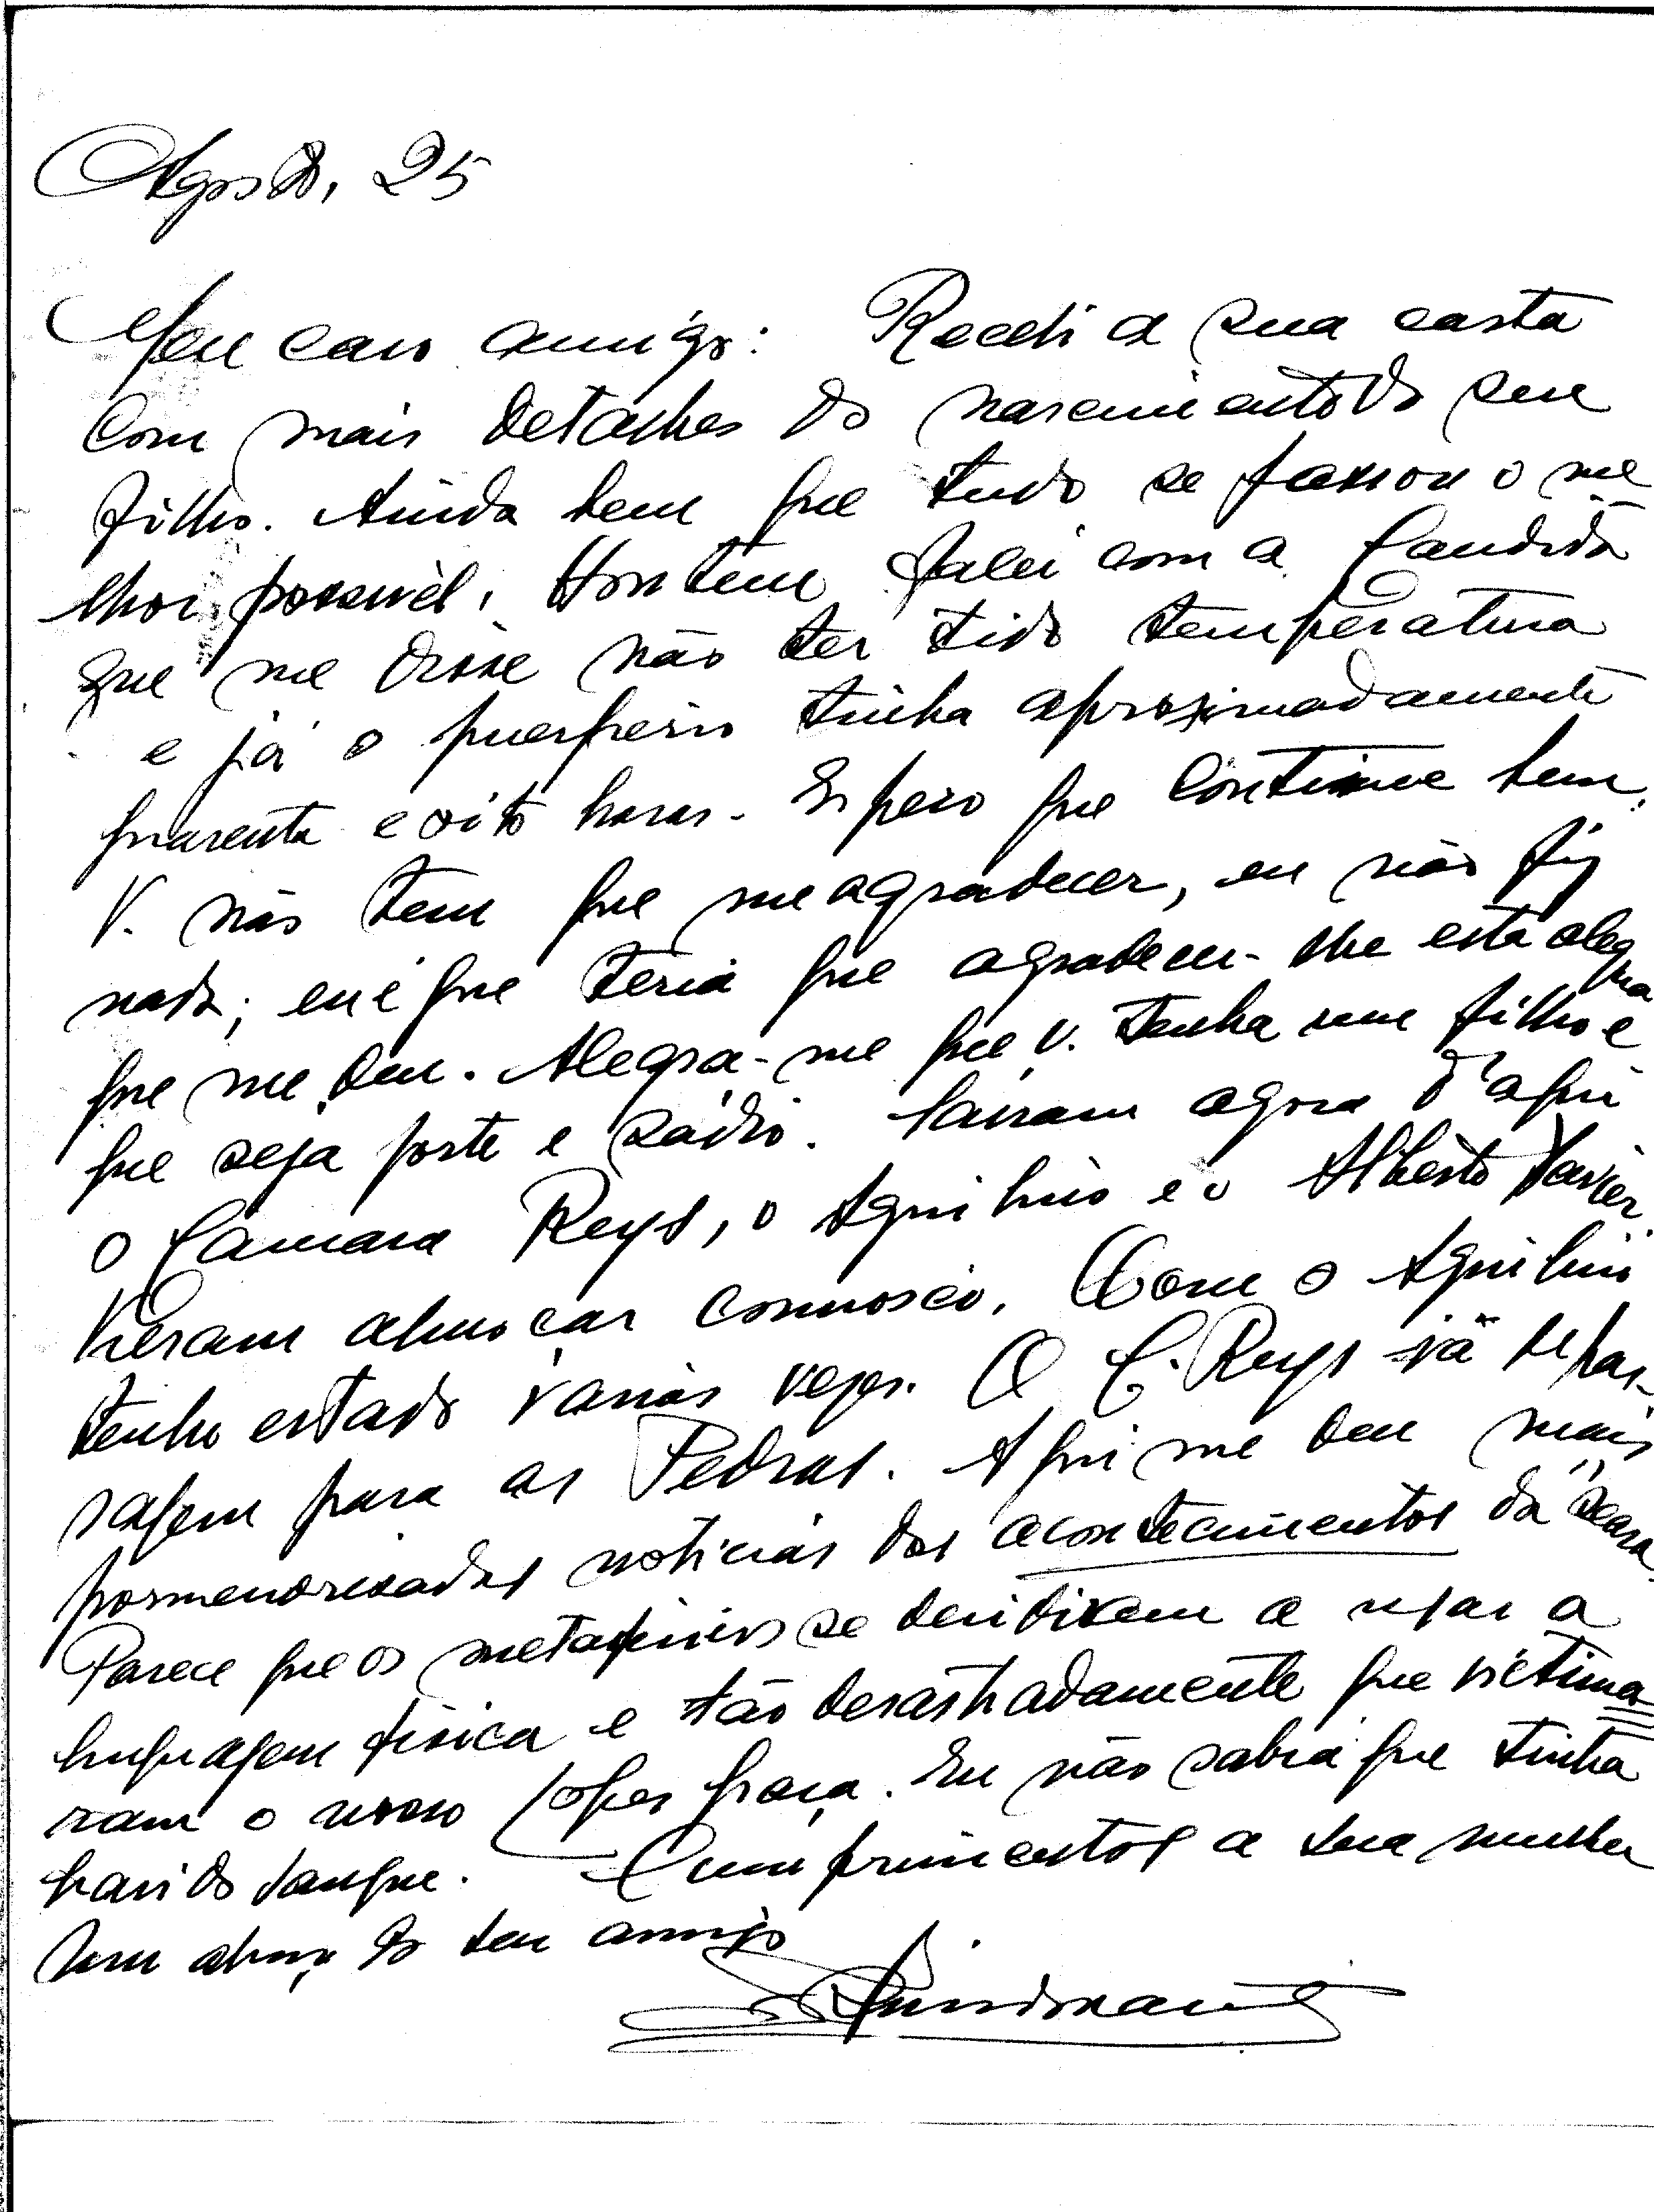 Agosto, 25
Meu caro amigo: Recebi a sua carta
com mais detalhes do nascimento do seu
filho. Ainda bem que tudo se passou o me
lhor possivel. Hontem falei com a Candida
que me disse não ter tido temperatura
e já o puerperio tinha aproximadamente
quarenta e oito horas. Espero que continue bem.
V. não tem que me agradecer, eu não fiz
nada; eu é que teria que agradecer-lhe esta alegria
que me deu. Alegra-me que V. tenha um filho e
que seja forte e sádio. Sairam agora d'aqui
o Camara Reys, o Aquilino e o Alberto Xavier.
Vieram almoçar comnosco. Com o Aquilino
tenho estado varias vezes. O C. Reys já de pas-
sagem para as Pedras. Aqui me deu mais
pormenorisadas noticias dos acontecimentos da "Seara"
Parece que os metafisicos se decidiram a usar a
linguagem fisica e tão desastradamente que victima
ram o nosso Lopes Graça. Eu não sabia que tinha
havido sangue. Cumprimentos a sua mulher
Um abraço do seu amigo